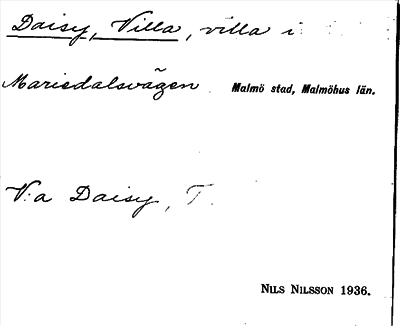 Daisy, Villa, villa i
Mariedalsvägen. Malmö stad, Malmöhus län.
V:a Daisy, T.
NILS NILSSON 1936.